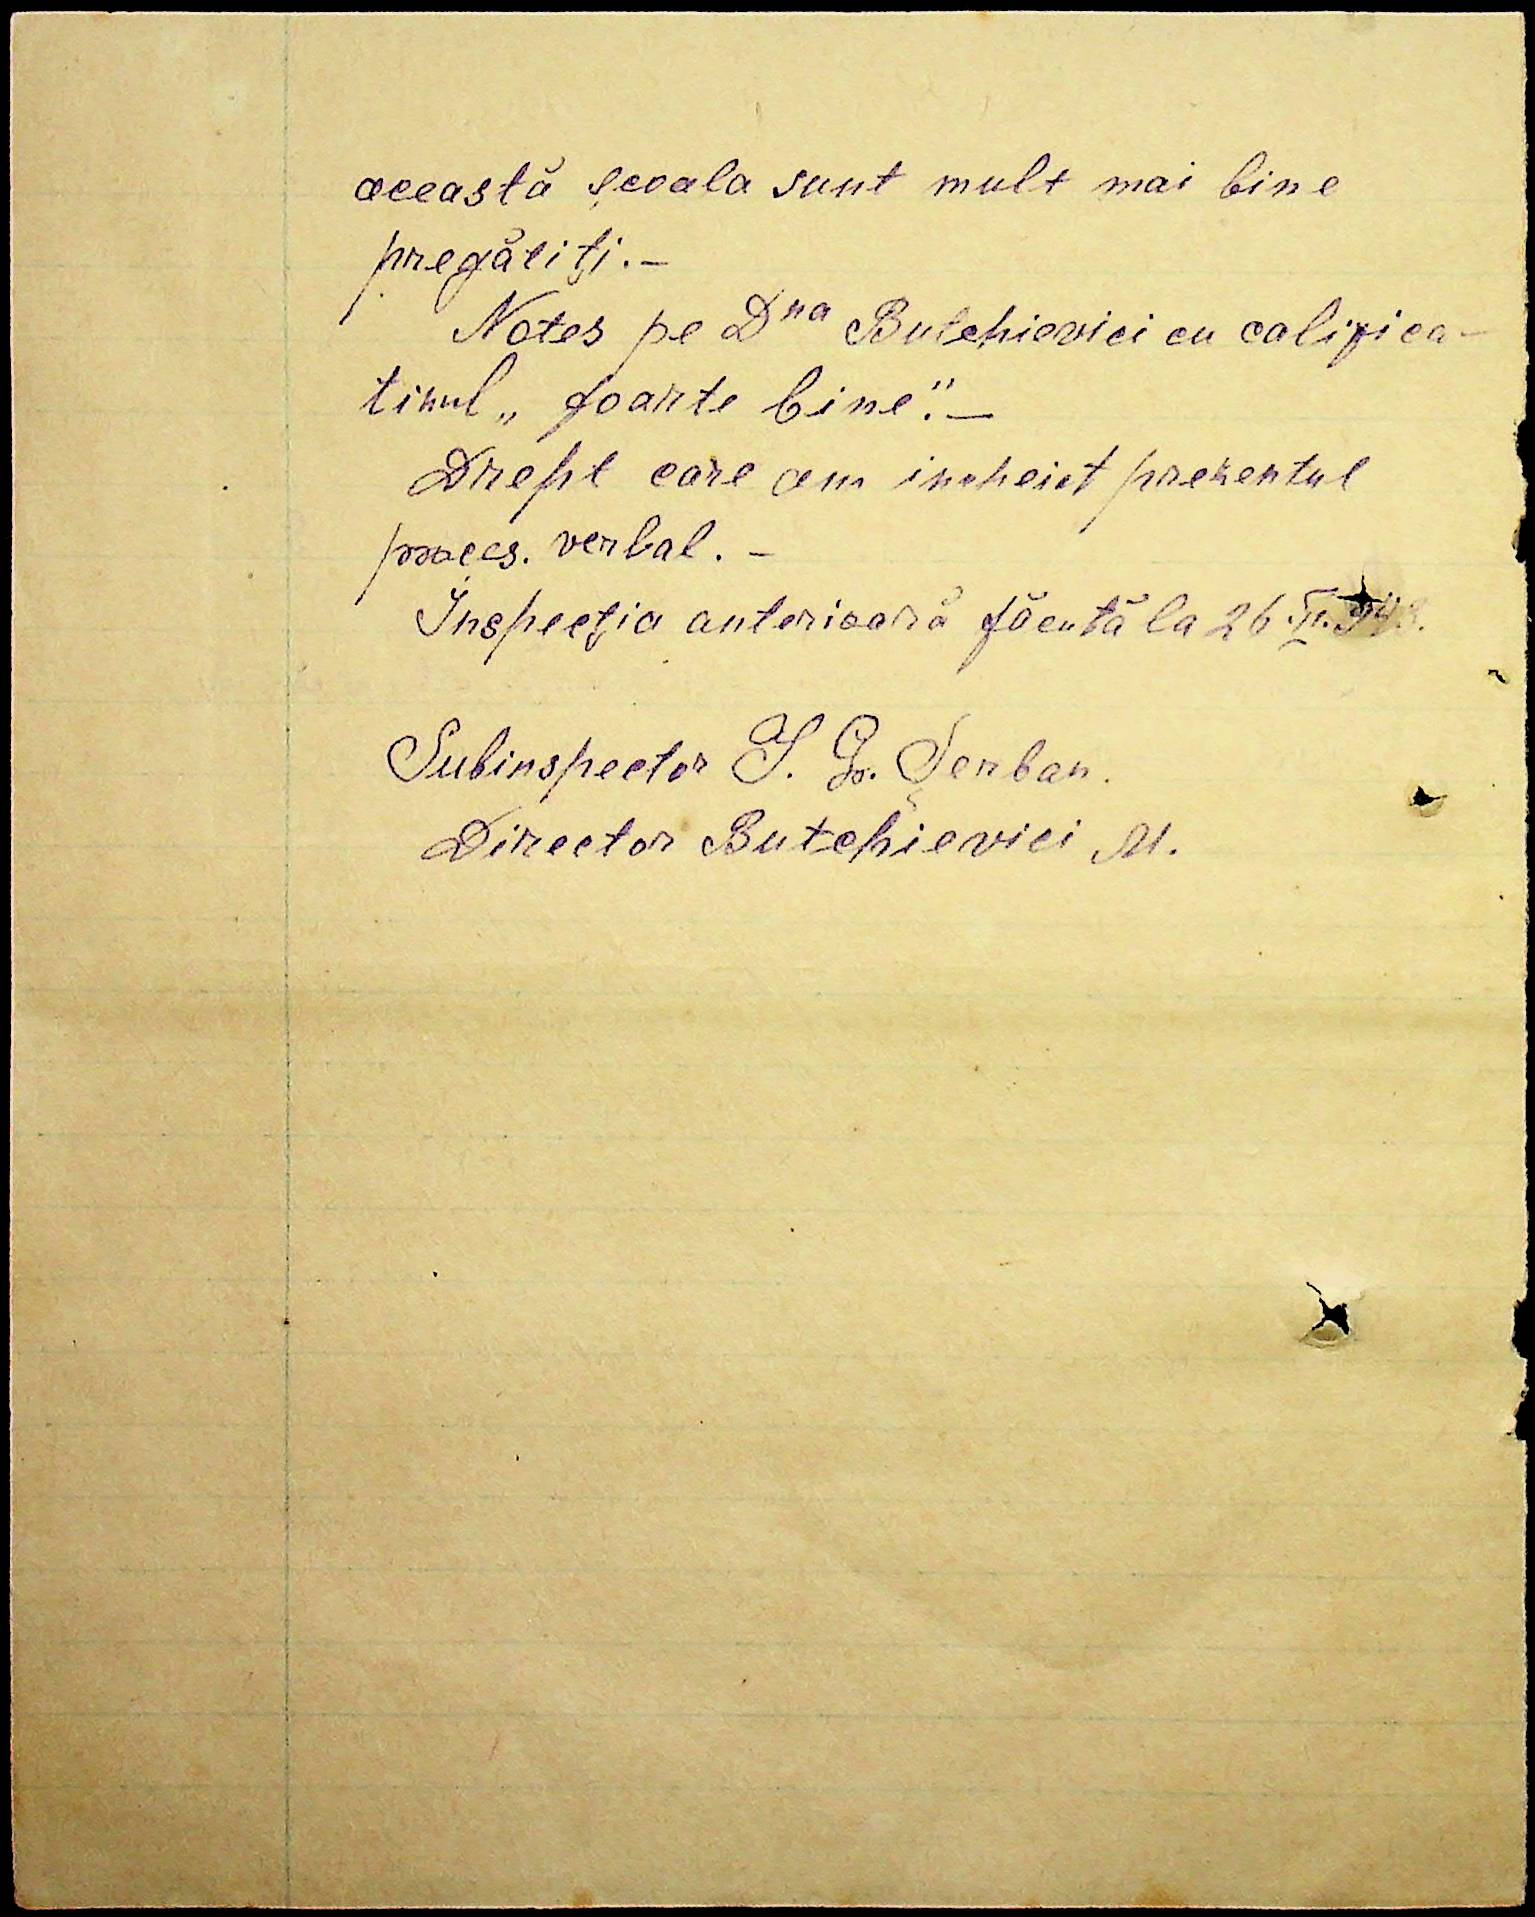 această școala sunt mult mai bine
pregătiți.—
Notes pe Dna Butchievici cu califica-
tivul „foarte bine".—
Drept care am incheiat prezentul
proces. verbal. —
Inspecția anterioară făcută la 26
Subinspector I. G. Șerban.
Director Butchievici M.